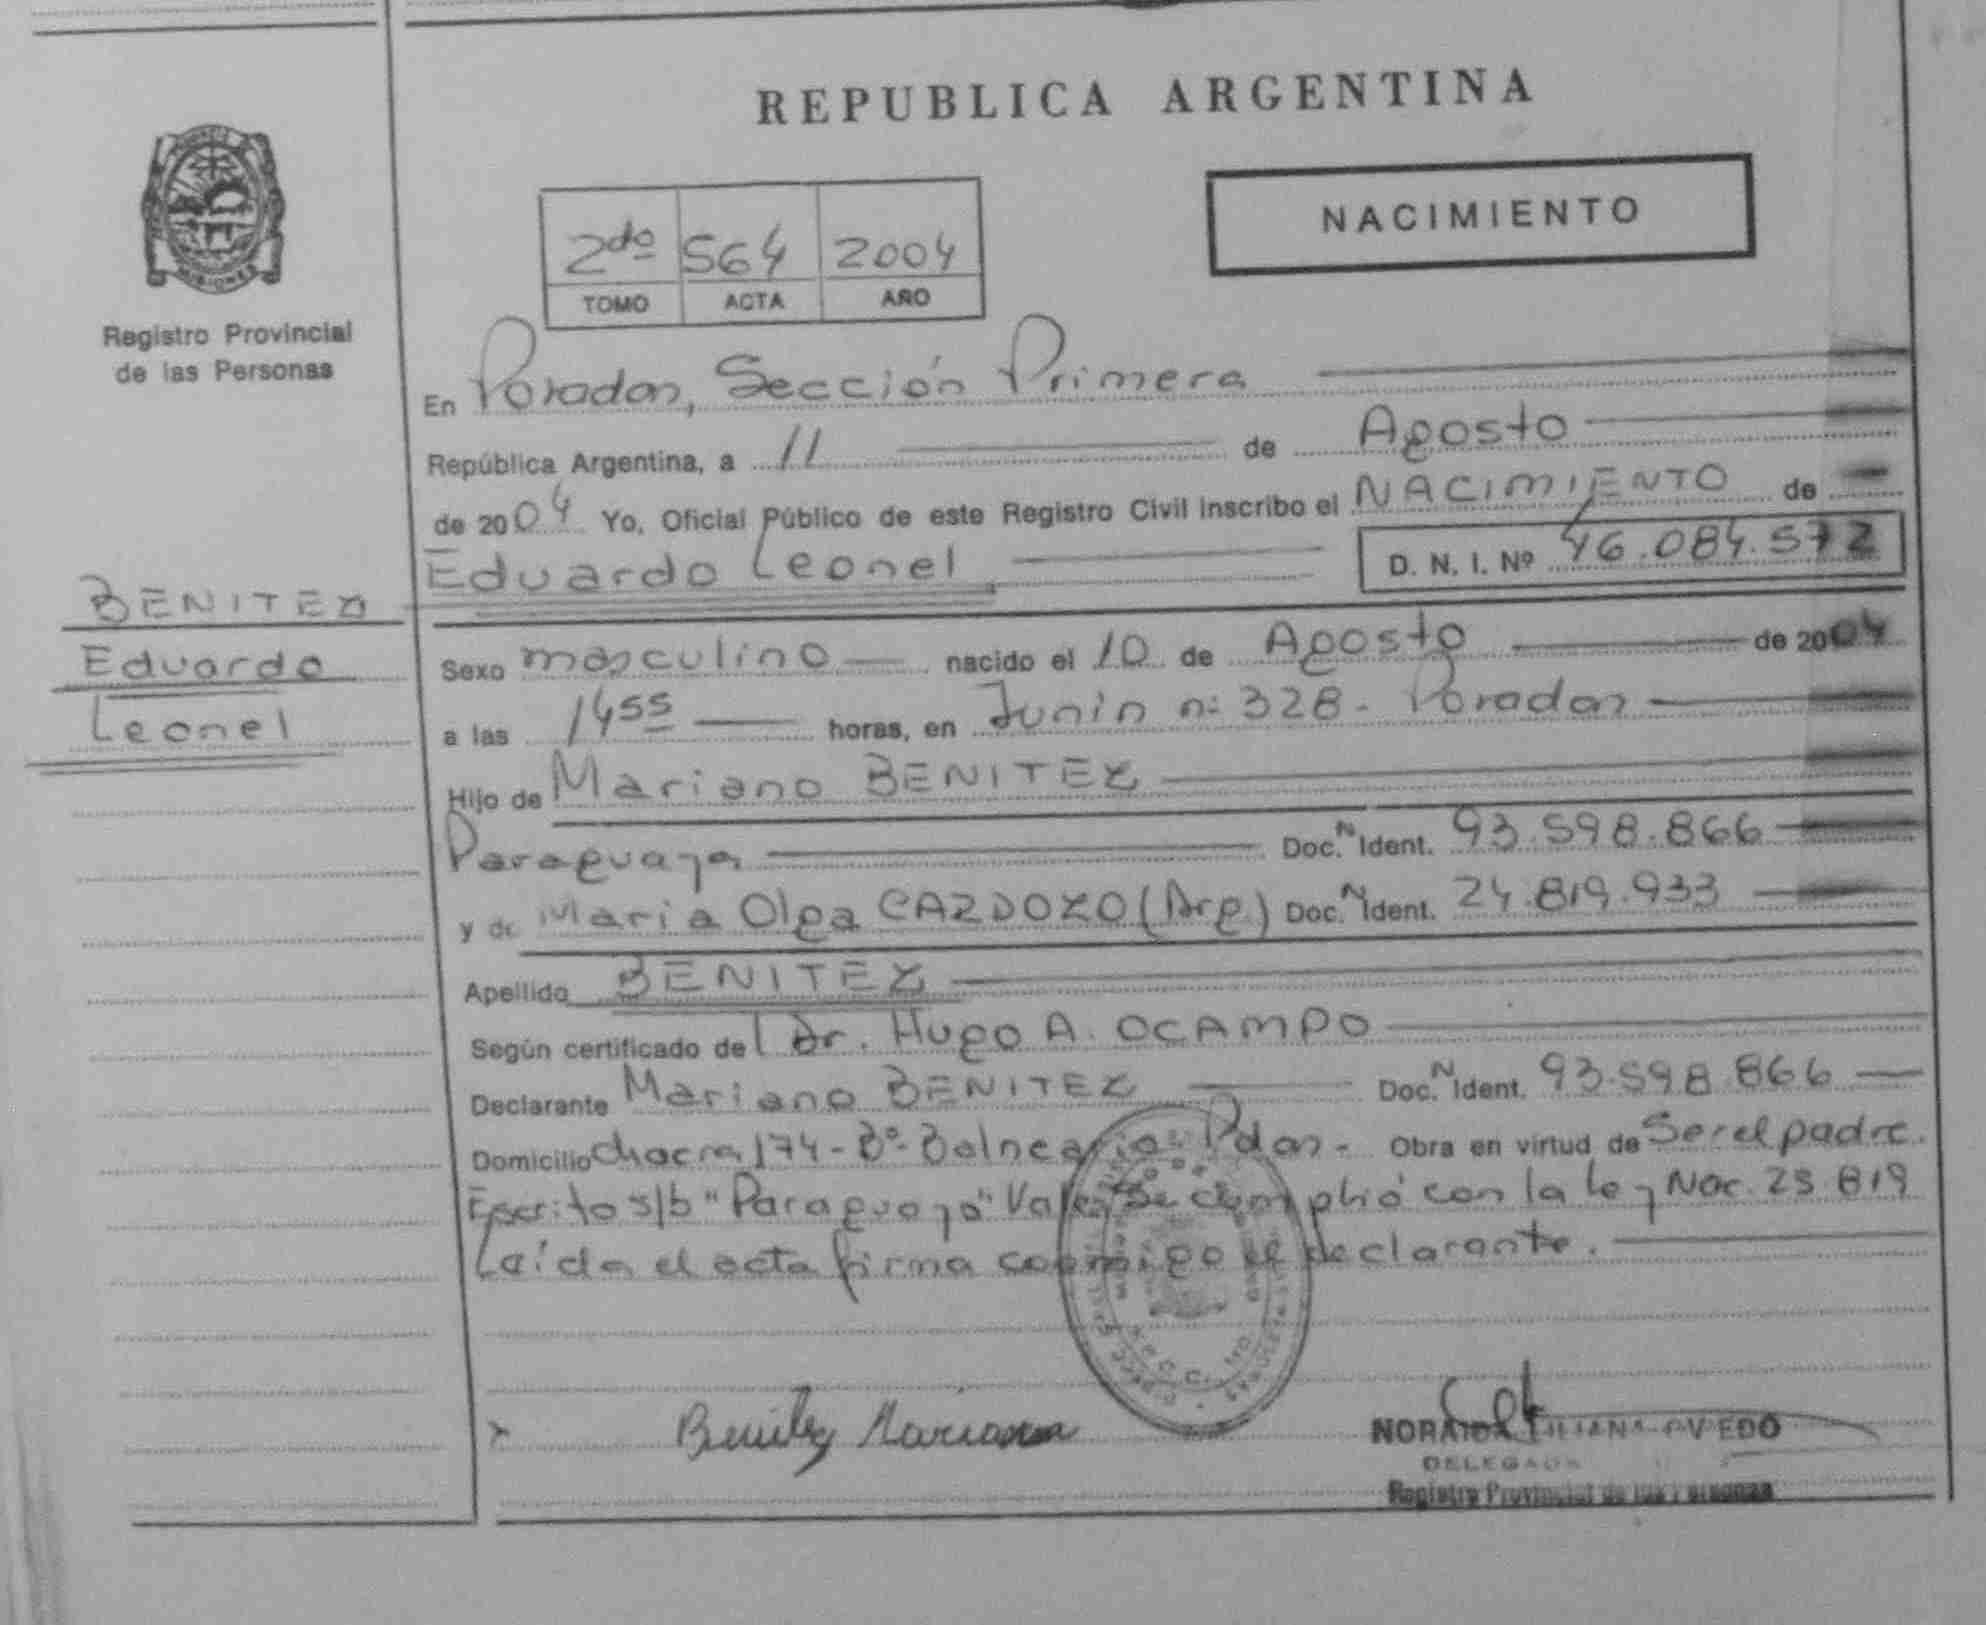 REPUBLICA ARGENTINA
NACIMIENTO
2do 564 2004
TOMO ACTA AÑO
Registro Provincial
de las Personas
En Posadas, Sección Primera
República Argentina, a 11 de Agosto
de 2004 Yo, Oficial Público de este Registro Civil inscribo el NACIMIENTO de
Eduardo Leonel D. N. I. Nº 46.084.572
BENITEZ
Eduardo
Leonel
Sexo masculino nacido el 10 de Agosto de 2004
a las 14 55 horas, en Junin n: 328 - Posadas
Hijo de Mariano BENITEZ
Paraguaya Doc. N Ident. 93.598.866
y de Maria Olga CARDOZO (Arg) Doc. N Ident. 24.819.933
Apellido BENITEZ
Según certificado del Dr. Hugo A. OCAMPO
Declarante Mariano BENITEZ Doc. N Ident. 93.598.866
Domicilio Chacra 174 - Bº Balneario - Pdas - Obra en virtud de Ser el padre.
Escrito s/b "Paraguaya" Vale, Se cumplió con la ley Nac. 25.819
Leída el acta firma conmigo el declarante.
Benitez Mariano
OVIEDO
DELEGADA
Registro Provincial de las Personas